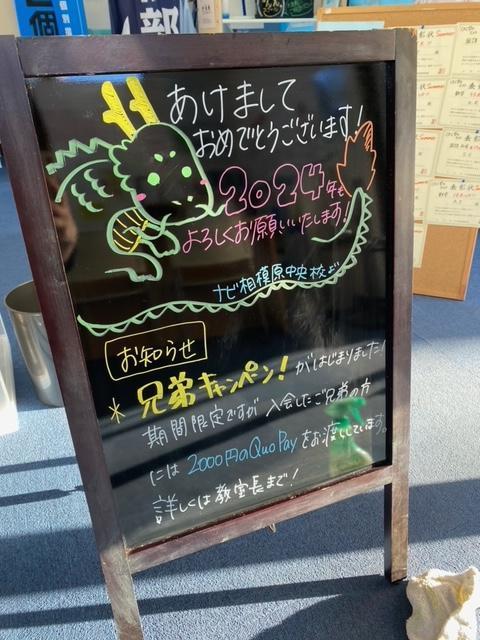 あけまして
おめでとうございます!
2024年も
よろしくお願いいたします!
ナビ相模原中央校より
お知らせ
*兄弟キャンペーン!がはじまりました!
期間限定ですが入会したご兄弟の方
には2000円のQuoPayをお渡ししています。
詳しくは教室長まで!
2個
個別
部
表彰状 Summer
表彰状
表彰状 Summer